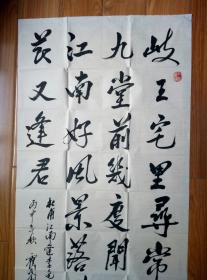 岐王宅里尋常
九堂前幾度聞
江南好風景落
节又逢君
杜甫江南逢李龟
丙申之秋